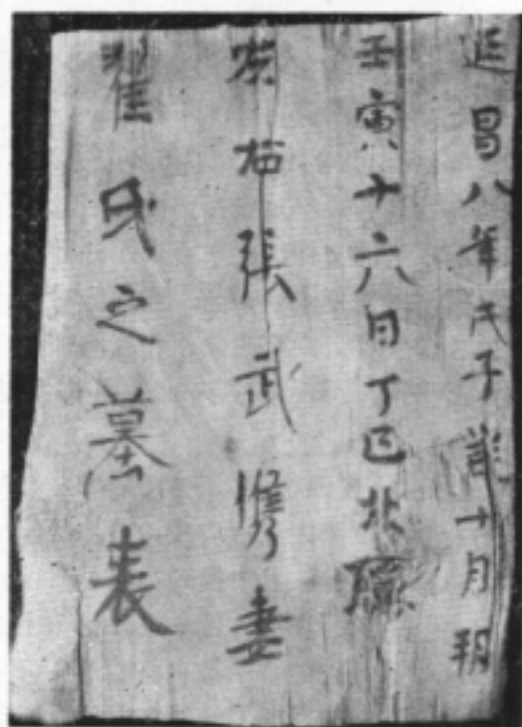 延昌八年戊子歲十月朔
壬寅十六日丁巳北
張武儁妻
翟氏之墓表